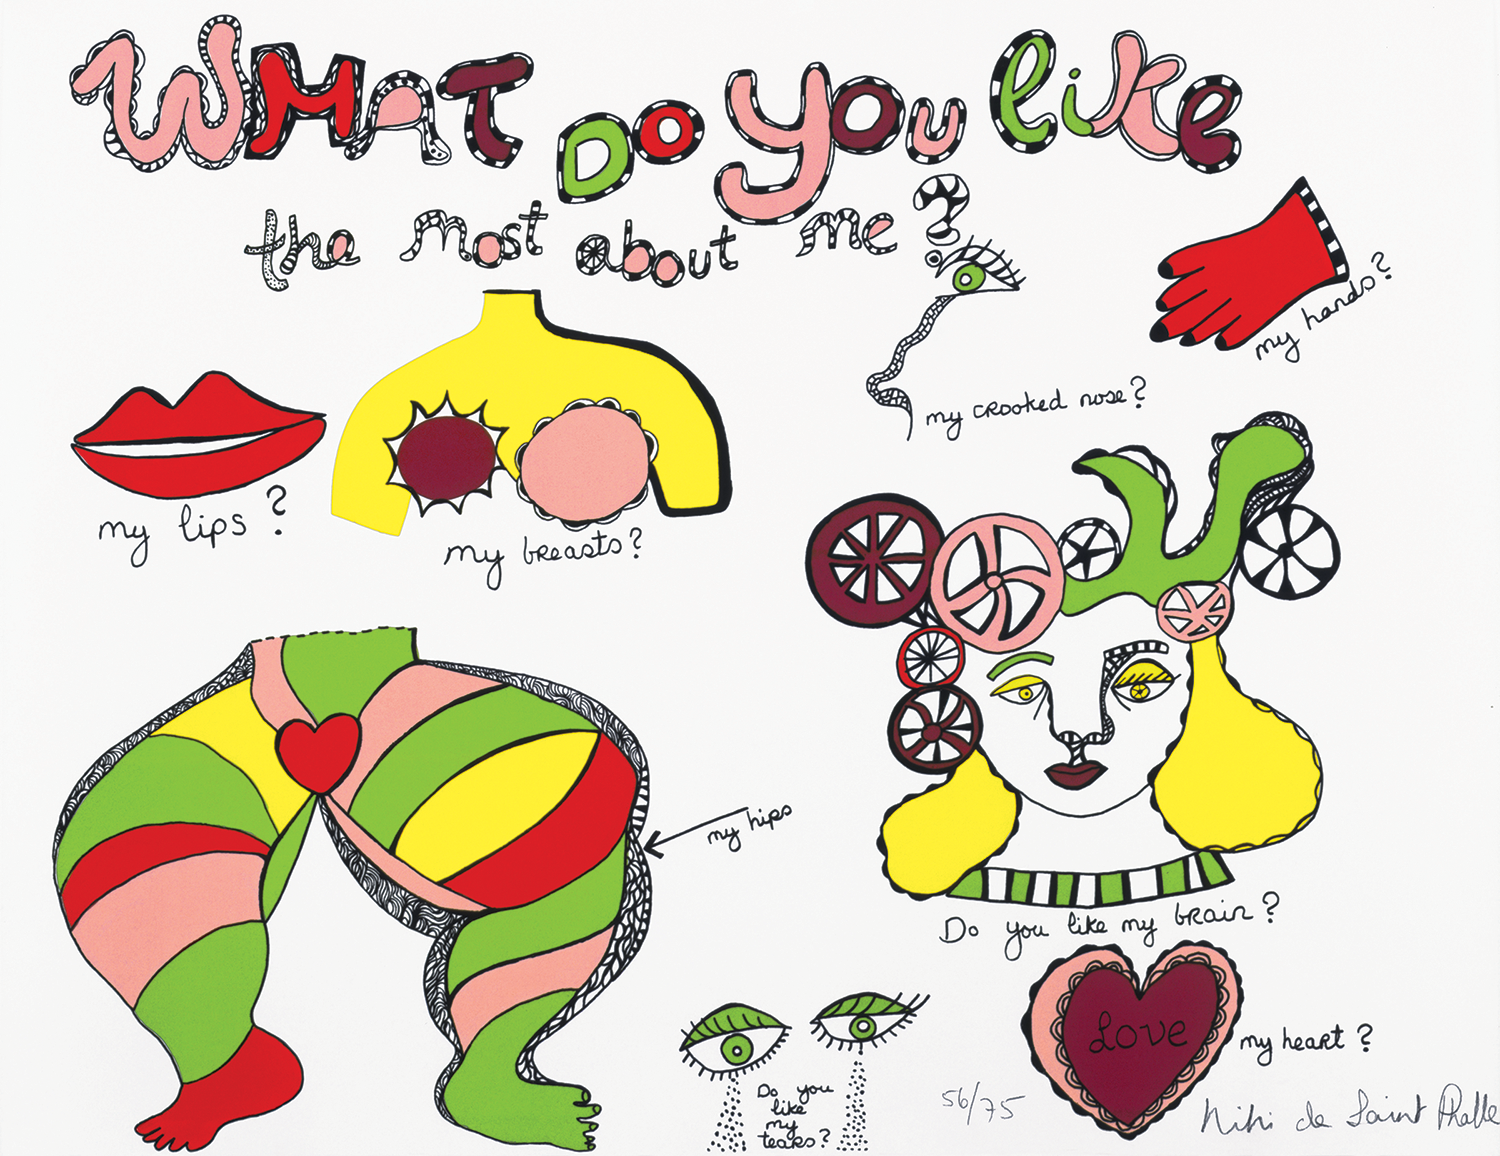 WHAT DO YOU like
the most about me?
my hands?
my crooked nose?
my lips?
my breasts?
my hips
Do you like my brain?
LOVE
my heart?
Do you
like
my
tears?
56/75
Niki de Saint Phalle